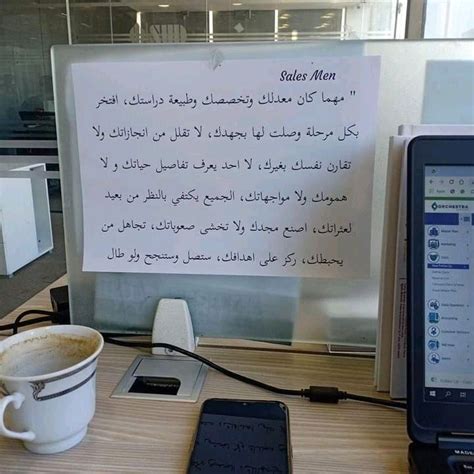 Sales Men
" مهما كان معدلك وتخصصك وطبيعة دراستك، افتخر
بكل مرحلة وصلت لها بجهدك، لا تقلل من انجازاتك ولا
تقارن نفسك بغيرك، لا احد يعرف تفاصيل حياتك و لا
همومك ولا مواجهاتك، الجميع يكتفي بالنظر من بعيد
لعثراتك، اصنع مجدك ولا تخشى صعوباتك، تجاهل من
يحبطك، ركز على اهدافك، ستصل وستنجح ولو طال
ORCHESTRA